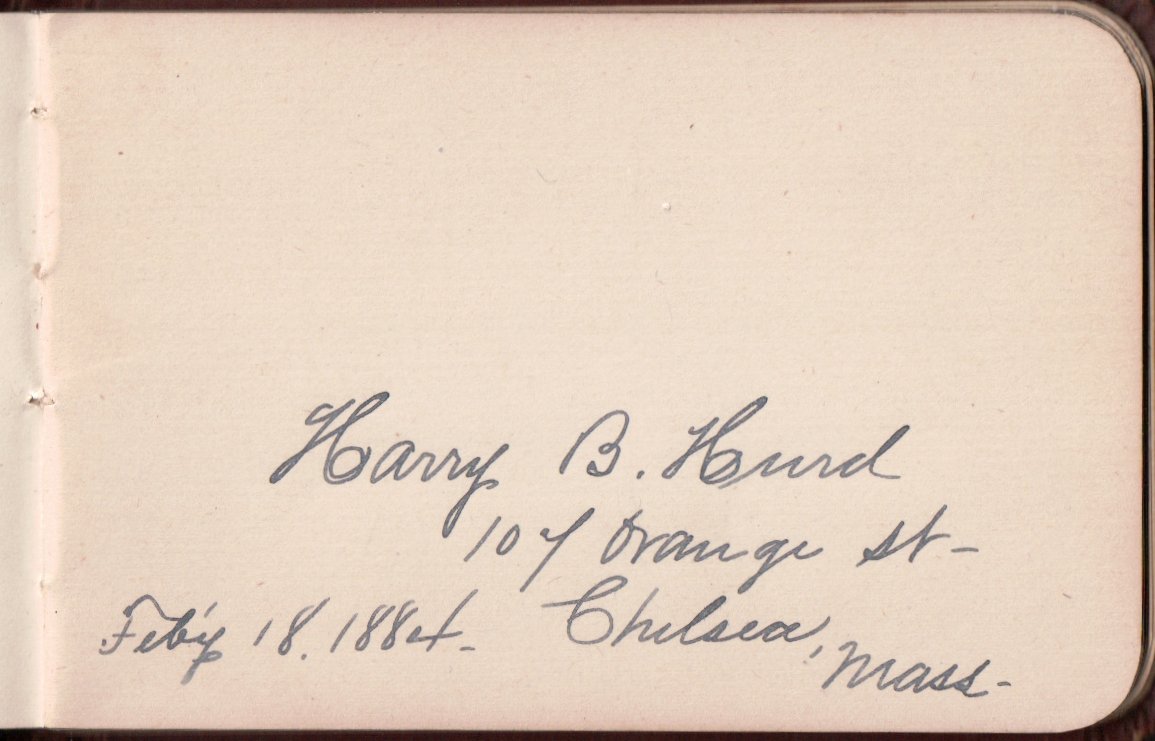 Harry B. Hurd
107 Orange St-
Feb'y 18. 1884- Chelsea,
Mass-